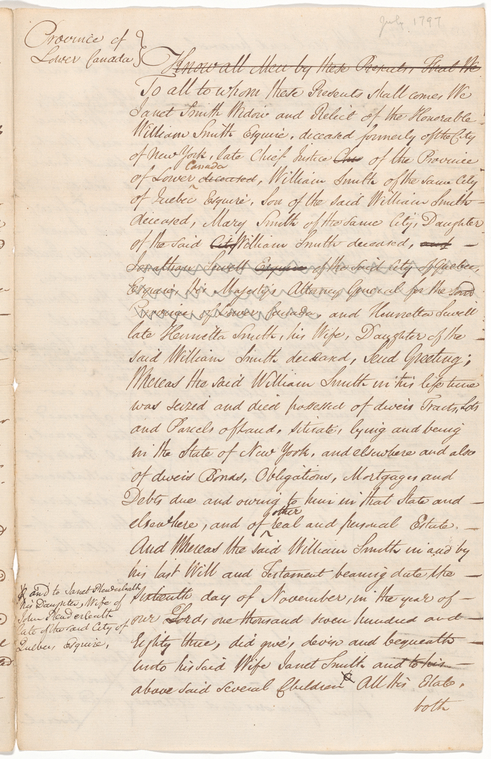 July 1797
Province of
Lower Canada
Know all Men by these Presents, That We
To all to whom these Presents shall come, We
Janet Smith Widow and Relict of the Honorable
William Smith Esquire, deceased formerly of the City
of New York, late Chief Justice of the Province
Canada
of Lower deceased, William Smith of the same City
of Quebec Esquire, Son of the said William Smith
deceased, Mary Smith of the same City, Daughter
of the said City William Smith deceased, and
Jonathan Sewell Esquire of the said City of Quebec,
Esquire His Majestys Attorney General for the said
Province of Lower Canada, and Henrietta Sewell
late Henrietta Smith, his Wife, Daughter of the
said William Smith deceased, Send Greeting;
Whereas the said William Smith in his life time
was seized and died possessed of divers Tracts, Lots
and Parcels of Land, situate, lying and being
in the State of New York, and elsewhere and also
of divers Bonds, Obligations, Mortgages, and
Debts due and owing to him in that State and
other
elsewhere, and of real and personal Estate.
And Whereas the said William Smith in and by
his last Will and Testament bearing date the
sixteenth day of November, in the year of
our Lord, one thousand seven hundred and
Eighty three, did give, devise and bequeath
unto his said Wife Janet Smith and to his
above said several Children All His Estate,
both
and to Janet Plenderleath
his Daughter, Wife of
John Plenderleath
late of the said City of
Quebec Esquire,